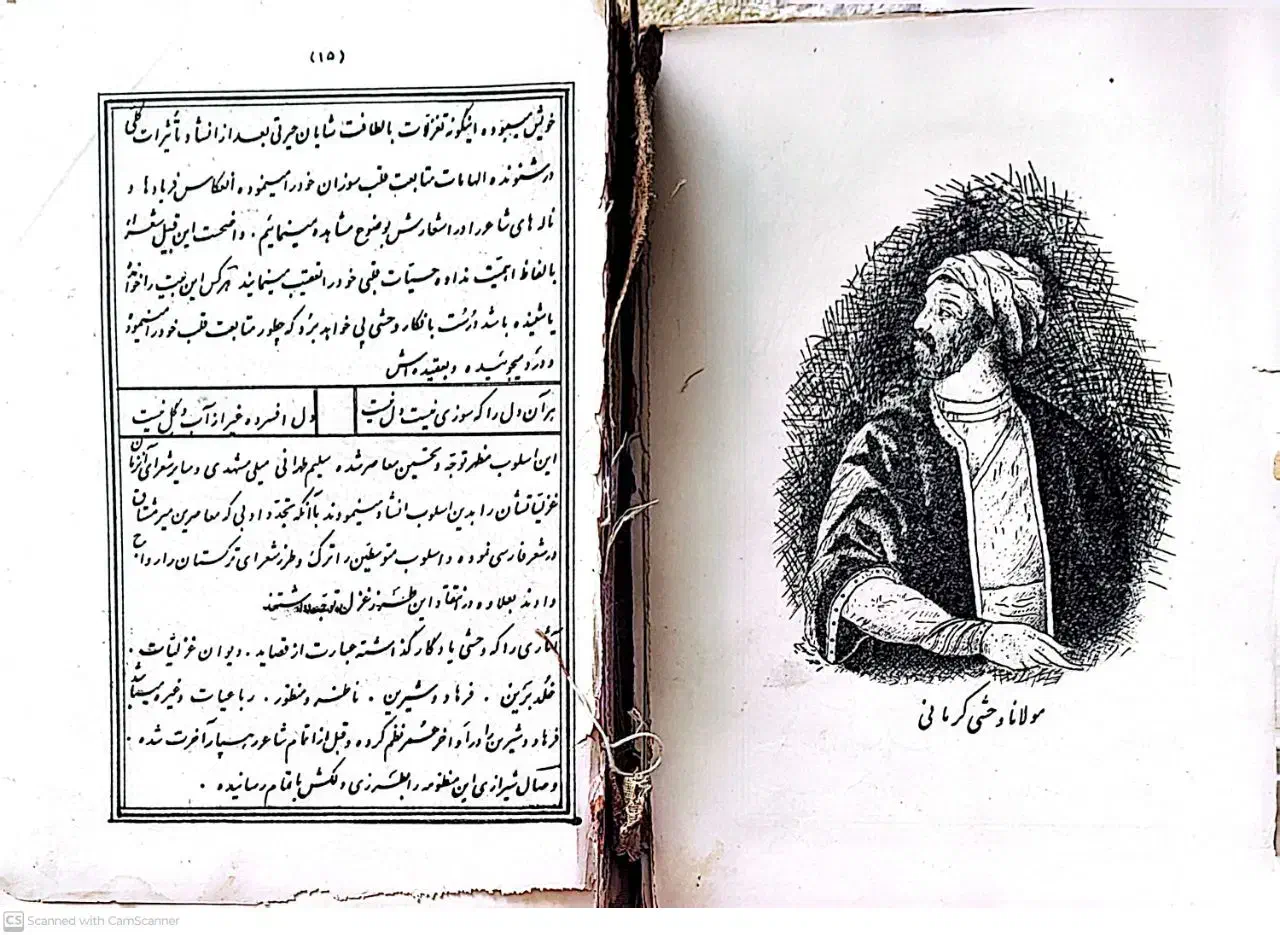 (۱۵)
خویش میبوده اینگونه تغزلات بالطافت شایان حیرتی بعد از انشاد تأثیرات کلی
در شنونده الهامات متابعت قلب سوزان خود را مینموده انعکاس فریادها و
ناله های شاعر را در اشعارش بوضوح مشاهده مینمائیم. واضحست این قبیل شعراء
بالفاظ اهمیت نداده حسیات قلبی خود را تعقیب مینمایند هر کس این بیت را خوانده
یا شنیده باشد درست بافکار وحشی پی خواهد برد که چطور متابعت قلب خود را مینموده
و درد میجوئیده و بعقیده اش
هر آن دل را که سوزی نیست دل نیست
دل افسرده غیر از آب و گل نیست
این اسلوب منظور توجه و تحسین معاصر شده سلیم طهرانی میلی مشهدی و سایر شعرای آنزمان
غزلیاتشان را بدین اسلوب انشاد مینمودند با آنکه تجدد ادبی که معاصرین میرمشتاق
در شعر فارسی نموده و اسلوب متوسطین را ترک و طرز شعرای ترکستان را رواج
دادند بعلاوه در انتقاد این طرز غزل
آثاری را که وحشی یادگار گذاشته عبارت از قصاید. دیوان غزلیات.
خلد برین. فرهاد و شیرین. ناظر و منظور. رباعیات وغیره میباشد
فرهاد و شیرین را در اواخر عمر نظم کرده و قبل از اتمام شاعر رهسپار آخرت شده.
وصال شیرازی این منظومه را بطرزی دلکش باتمام رسانیده.
مولانا وحشی کرمانی
CS Scanned with CamScanner